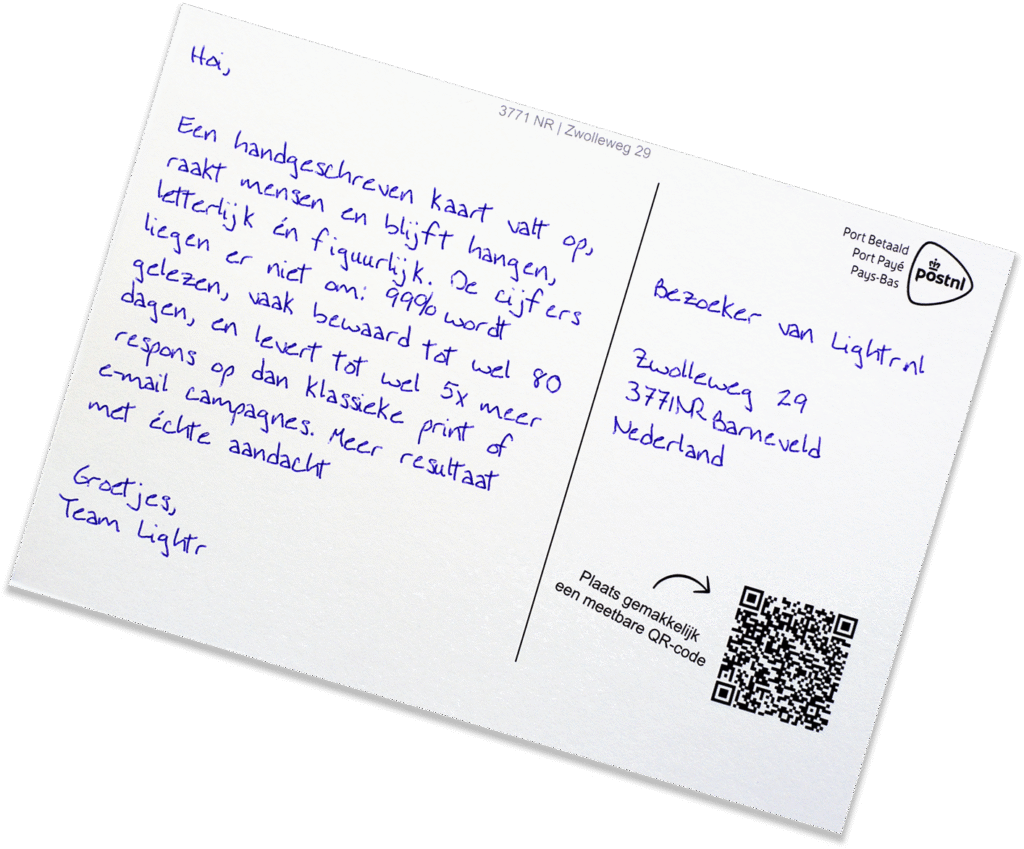 Hoi,
Een handgeschreven kaart valt op,
raakt mensen en blijft hangen,
letterlijk én figuurlijk. De cijfers
liegen er niet om: 99% wordt
gelezen, vaak bewaard tot wel 80
dagen, en levert tot wel 5x meer
respons op dan klassieke print of
e-mail campagnes. Meer resultaat
met échte aandacht
Groetjes,
Team Lightr
3771 NR | Zwolleweg 29
Port Betaald
Port Payé
Pays-Bas
postnl
Bezoeker van Lightr.nl
Zwolleweg 29
3771NR Barneveld
Nederland
Plaats gemakkelijk
een meetbare QR-code